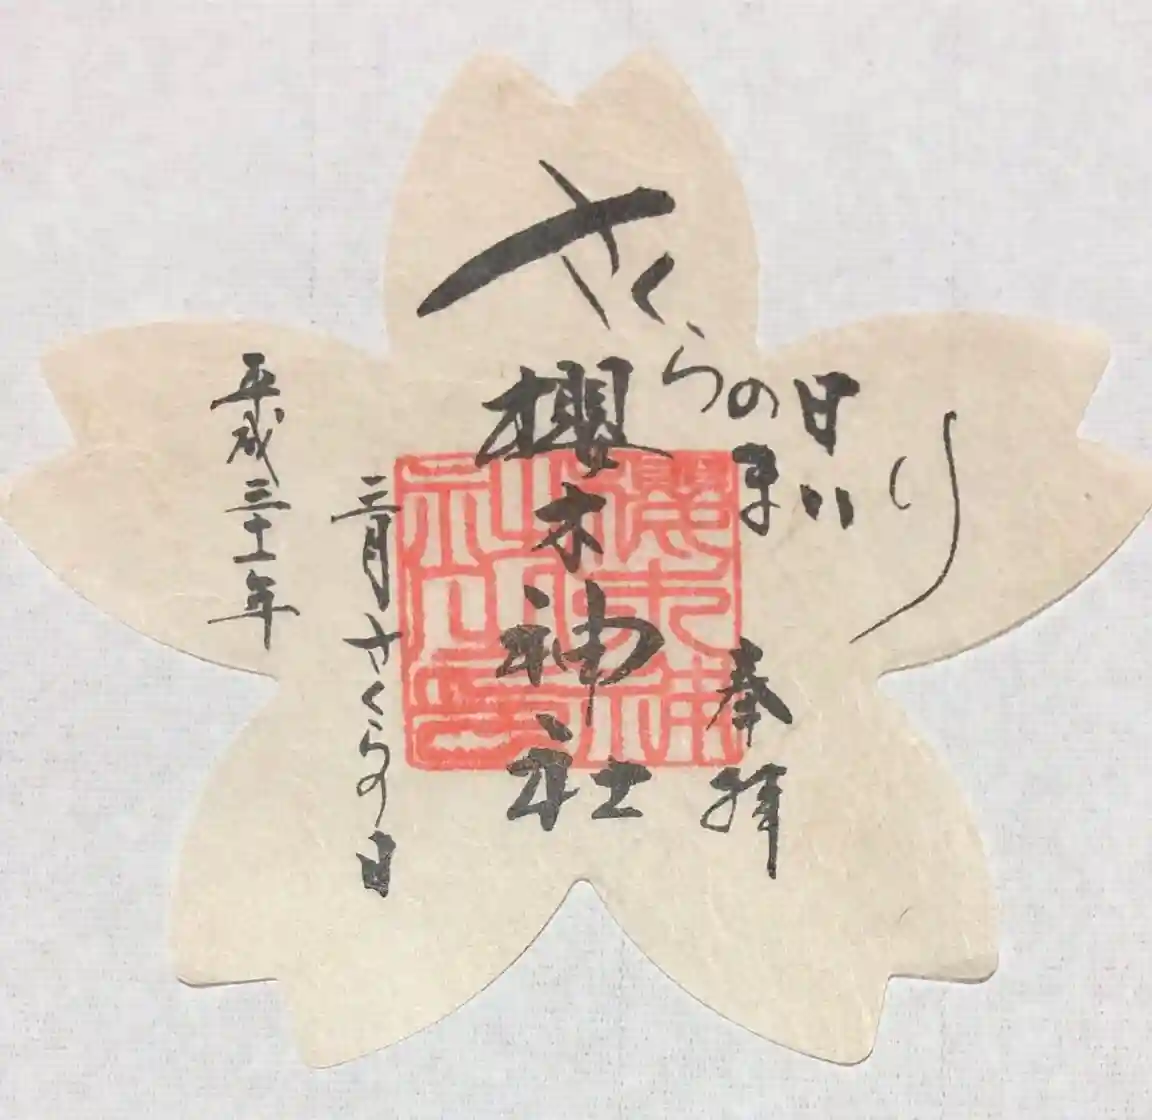 さくらの日
まいり
奉拝
櫻木神社
櫻木神社之印
三月さくらの日
平成三十一年